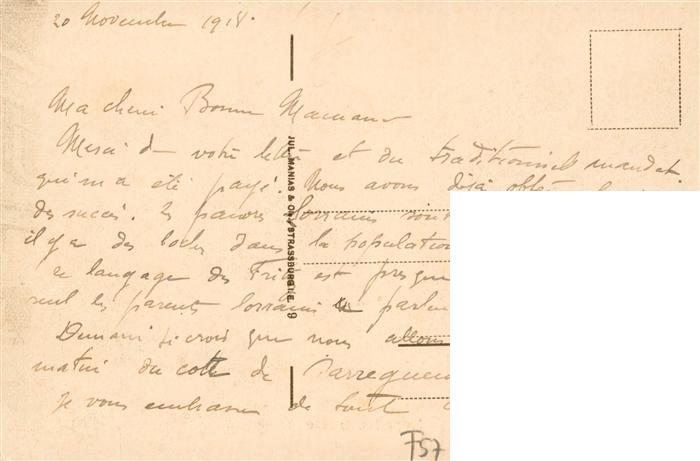 20 Novembre 1918.
Ma chère Bonne Maman
Merci de votre lettre et du traditionnel mandat
qui m'a été payé. Nous avons déjà
des succès. Les pauvres lorrains sont
il y a des boches dans la population
ce langage des Fritz est presque
seul les parents lorrains parlent
Demain je crois que nous allons
matin du coté de Sarreguem
Je vous embrasse de tout
JUL. MANIAS & CIE, STRASSBURG I.E. 9
F57